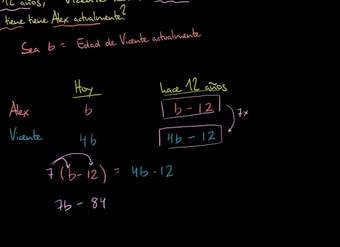 12 años, Vicente
tiene tiene Alex actualmente?
Sea b = Edad de Vicente actualmente
Hoy hace 12 años
Alex b b - 12
7x
Vicente 4b 4b - 12
7 (b - 12) = 4b - 12
7b - 84